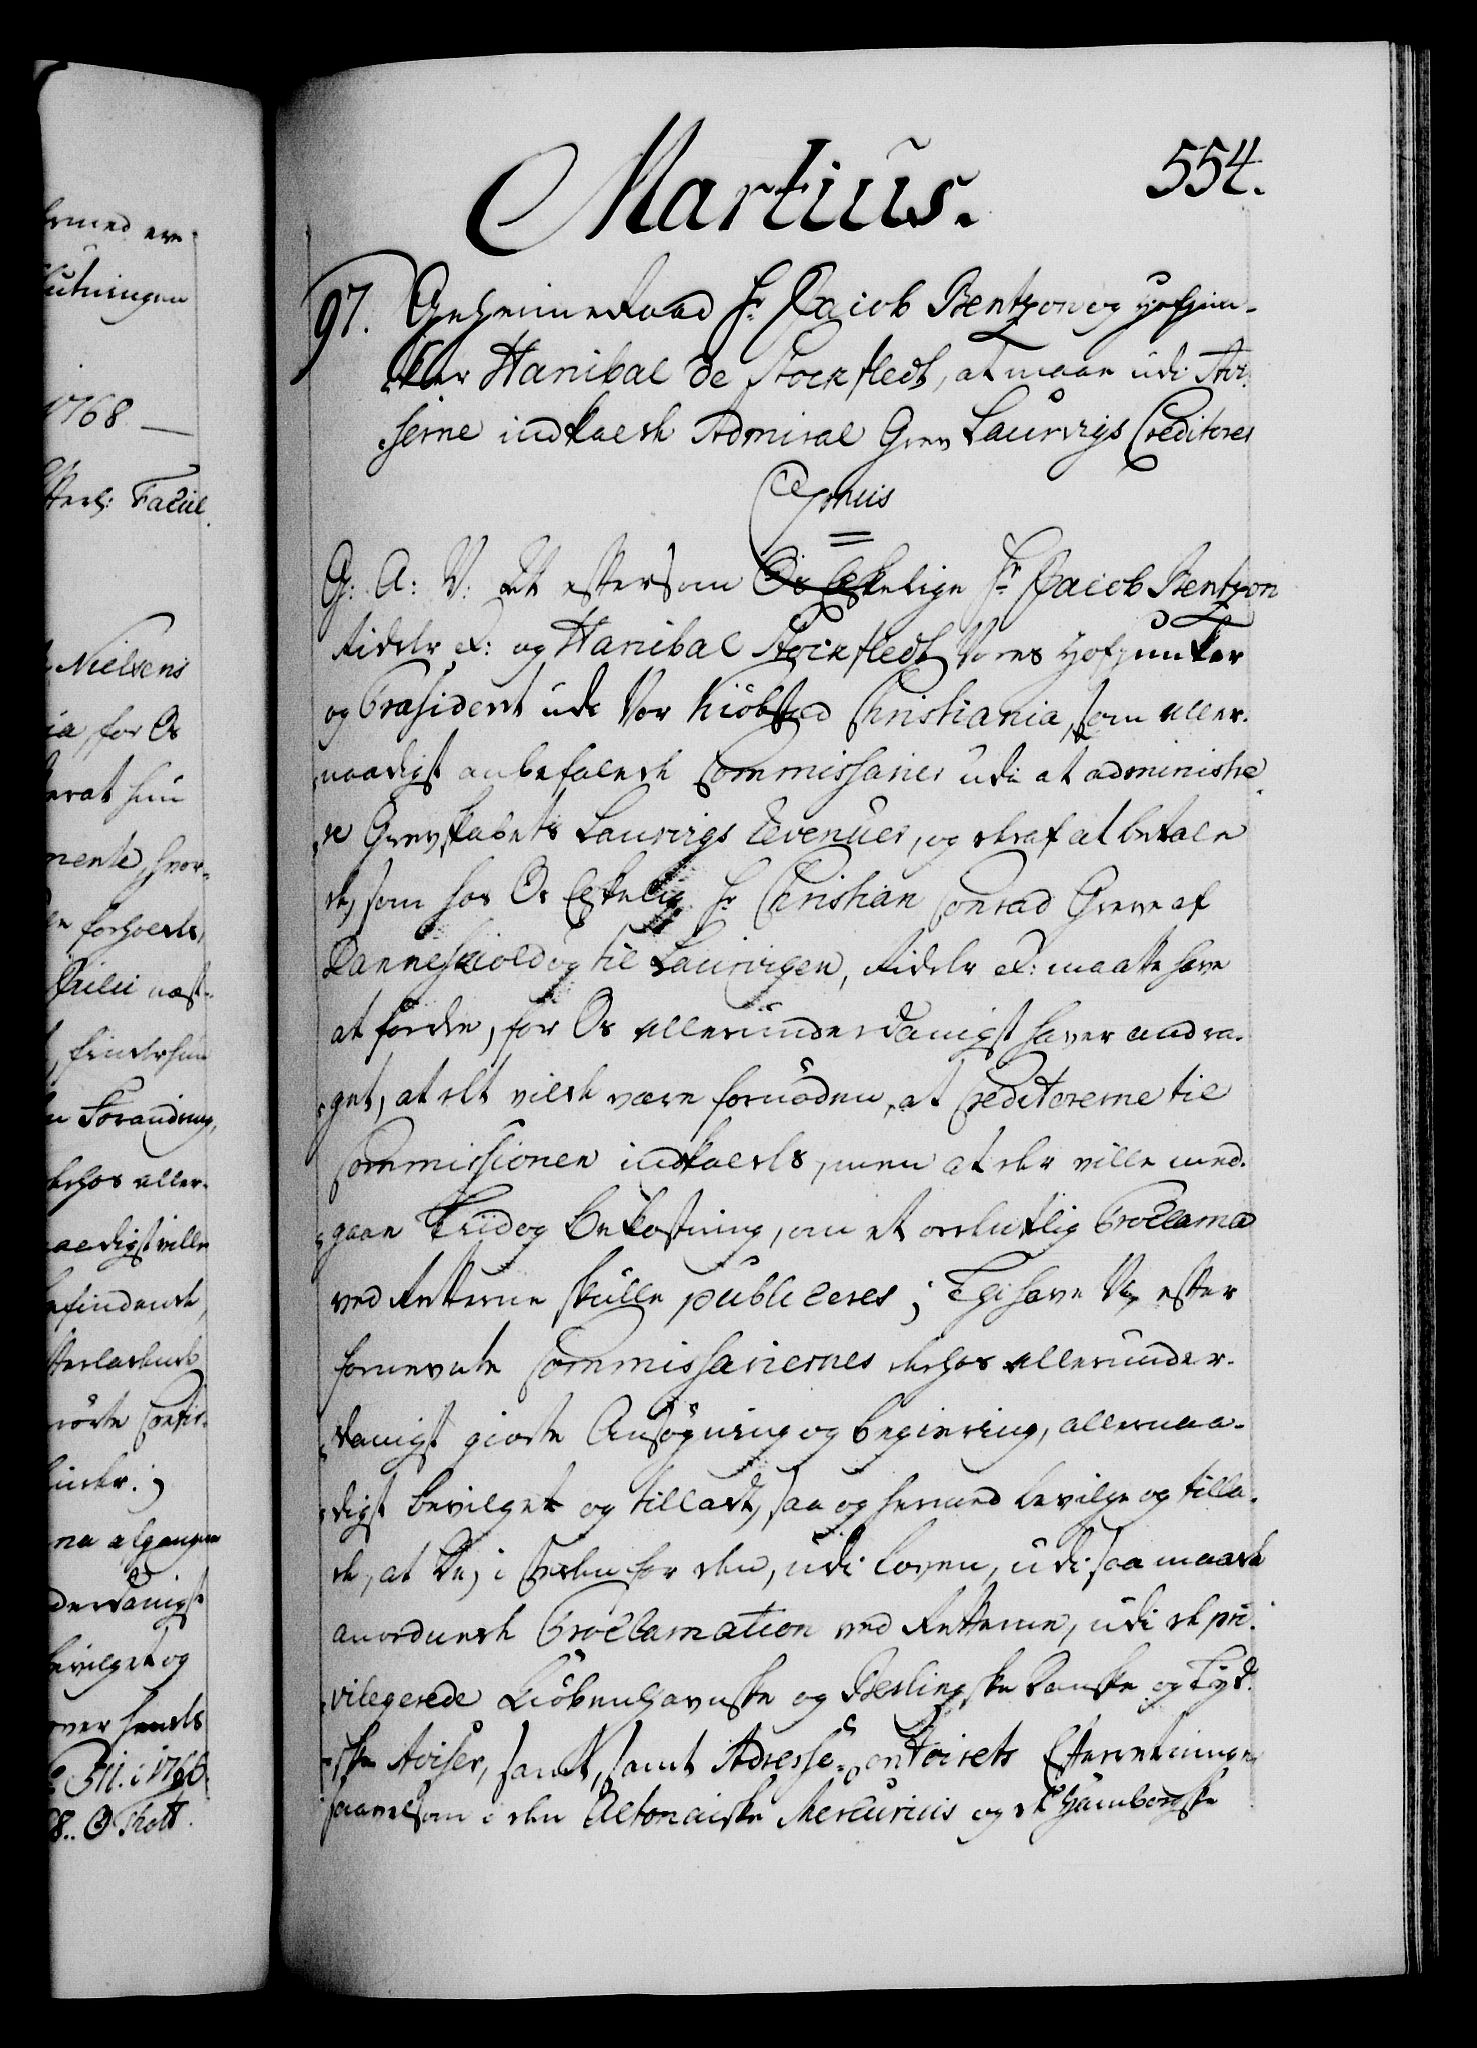 Martius.
554.
97. Geheime Raad Hr. Jacob Bentzon og Hofjun-
ker Hanibal de Stockfledt, at maae udi Avi-
serne indkalde Admiral Grev Laurvigs Creditores
Gratis
G: A: V: At eftersom Os Elskelige Hr. Jacob Bentzon
Ridder &: og Hanibal Stockfledt Vores Hofjunker
og Præsident udi Vor Kiöbsted Christiania, som aller-
naadigst anbefalede Commissarier udi at administre-
re Grevskabets Laurvigs Revenuer, og deraf at betale
de, som hos Os Elskelig Hr. Christian Conrad Greve af
Danneskiold og til Laurvigen, Ridder &: maatte have
at fordre, for Os allerunderdanigst haver andra-
get, at det vilde være fornöden, at Creditorerne til
Commissionen indkaldes, men at der ville med-
gaae Tiid og Bekostning, om et ordentlig Proclama
ved Retterne skulle publiceres; Thi have Vi, efter
fornevnte Commissariernes derhos allerunder-
danigst giorte Ansögning og Begiering, allernaa-
digst bevilget og tilladt, saa og hermed bevilge og tilla-
de, at De, i Steden for den, udi Loven, udi saa maade
anordnede Proclamation ved Retterne, udi de pri-
vilegerede Kiöbenhavnske og Berlingske Danske og Tyd-
ske Aviser, samt, samt Adresse-Contoirets Efterretninger
saavelsom i den Altonaiske Mercurius og de Hamborgske
ermed ere
1768.
Facul.
Nielsens
ia, for Os
erat hun
mente, hvor-
forhverts,
Julii næst-
Forandring,
derhos aller-
naadigst ville
efindende,
efterladende
rörte Confir-
inder.;
na afgangen
derdanigst
bevilget og
over hendes
1768.
O Thott.